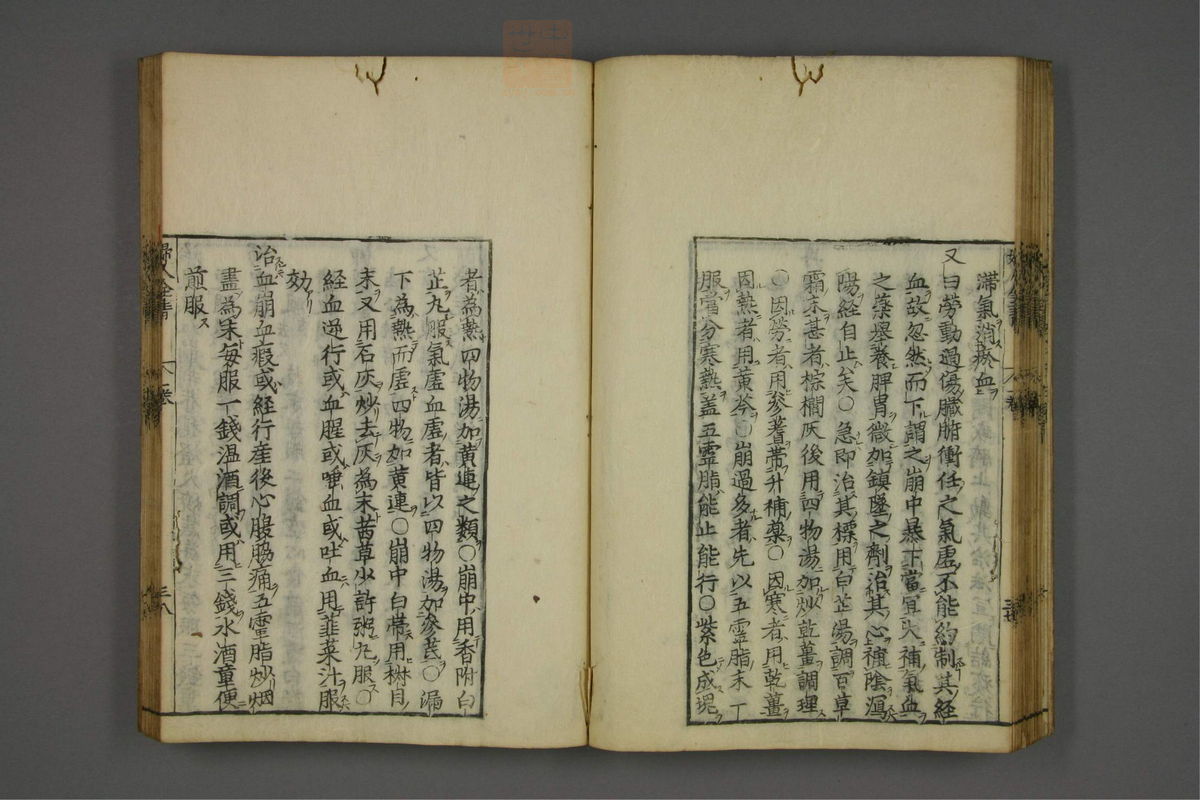 滞氣消瘀血
又曰勞動過傷臟腑衝任之氣虛不能約制其經
血故忽然而下謂之崩中暴下當宜大補氣血
之藥舉養脾胃微加鎮墜之劑治其心補陰瀉
陽経自止矣○急即治其標用白芷湯調百草
霜末甚者棕櫚灰後用四物湯加炒乾薑調理
○因勞者用參蓍帯升補藥○因寒者用乾薑
因熱者用黄芩○崩過多者先以五霊脂末一
服當分寒熱盖五霊脂能止能行○紫色成塊
者為熱四物湯加黄連之類○崩中用香附白
芷丸服氣虛血虛者皆以四物湯加參芪○漏
下為熱而虛四物加黄連○崩中白帯用椒目
末又用石灰炒去灰為末茜草少許粥丸服○
経血逆行或血腥或唾血或吐血用韮菜汁服
効
治血崩血瘕或経行産後心腹脇痛五霊脂炒烟
盡為末毎服一錢温酒調或用三錢水酒童便
煎服